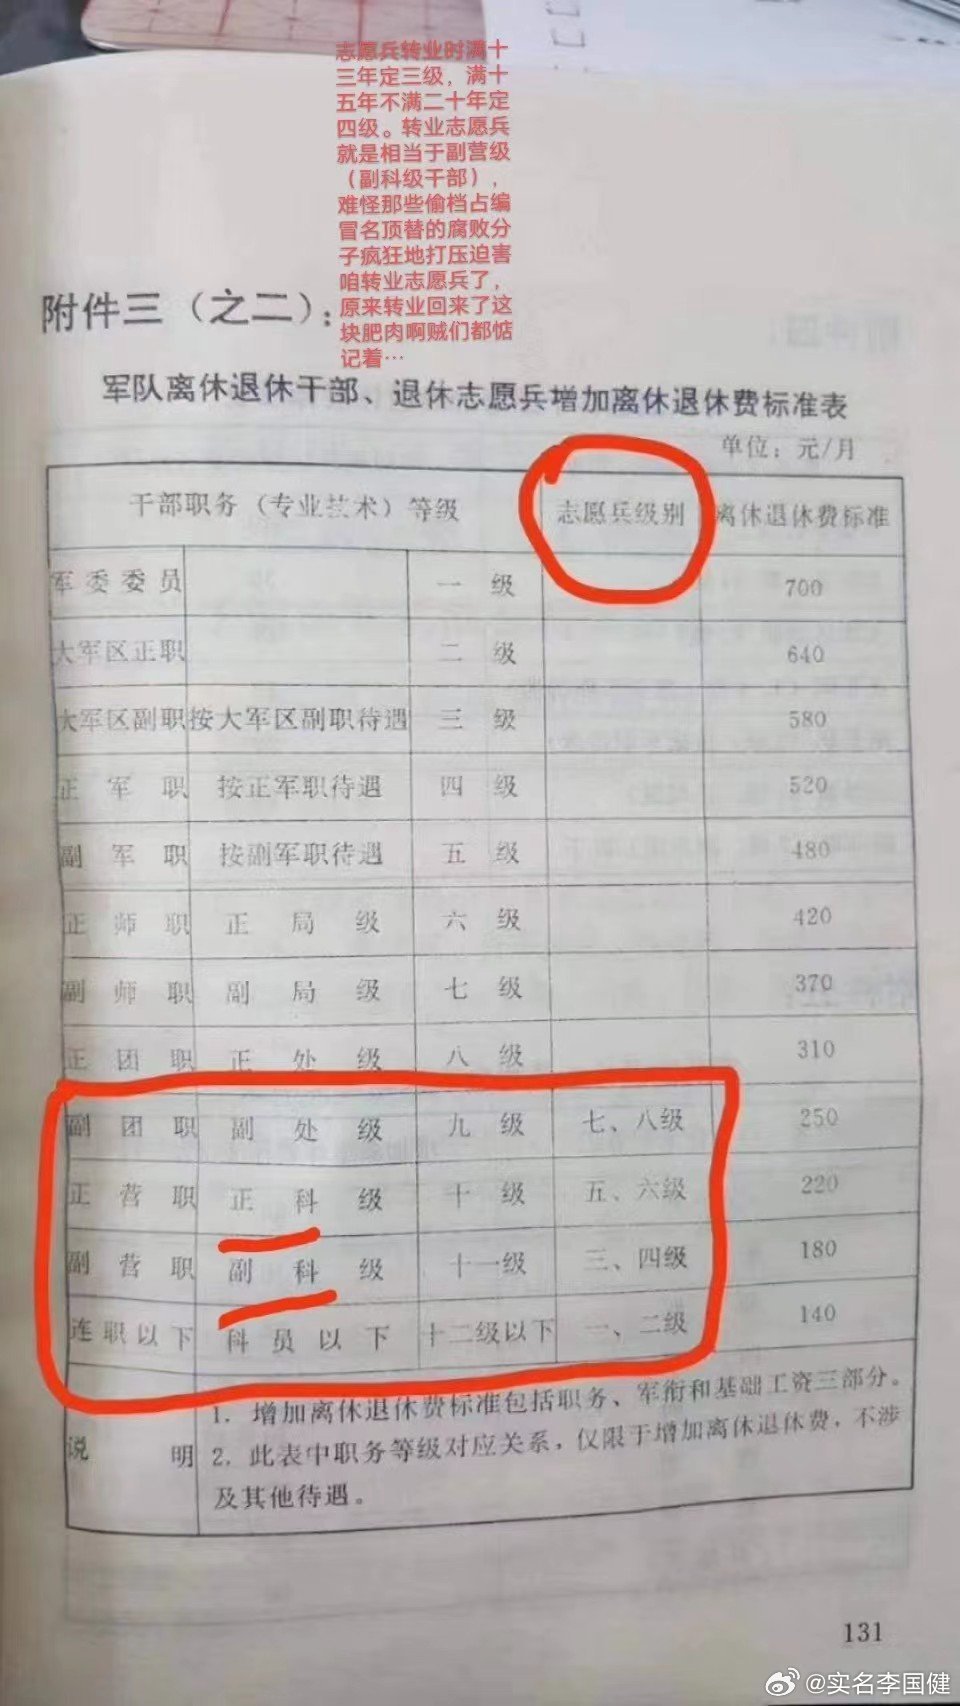 志愿兵转业时满十
三年定三级，满十
五年不满二十年定
四级。转业志愿兵
就是相当于副营级
（副科级干部），
难怪那些偷档占编
冒名顶替的腐败分
子疯狂地打压迫害
咱转业志愿兵了，
原来转业回来了这
块肥肉啊贼们都惦
记着…
附件三（之二）：
军队离休退休干部、退休志愿兵增加离休退休费标准表
单位：元/月
干部职务（专业技术）等级 志愿兵级别 离休退休费标准
军委委员 一级 700
大军区正职 二级 640
大军区副职 按大军区副职待遇 三级 580
正军职 按正军职待遇 四级 520
副军职 按副军职待遇 五级 480
正师职 正局级 六级 420
副师职 副局级 七级 370
正团职 正处级 八级 310
副团职 副处级 九级 七、八级 250
正营职 正科级 十级 五、六级 220
副营职 副科级 十一级 三、四级 180
连职以下 科员以下 十二级以下 一、二级 140
说明 1．增加离休退休费标准包括职务、军衔和基础工资三部分。
2．此表中职务等级对应关系，仅限于增加离休退休费，不涉
及其他待遇。
131
@实名李国健